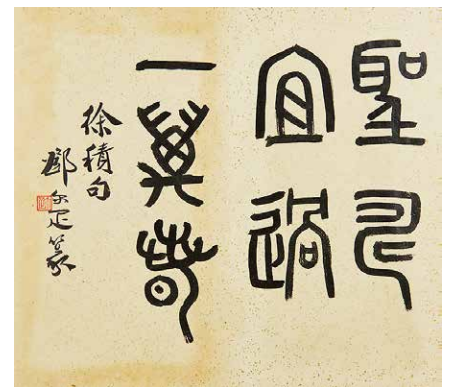 聖
宜過
一萬壽
徐積句
鄧尔疋篆